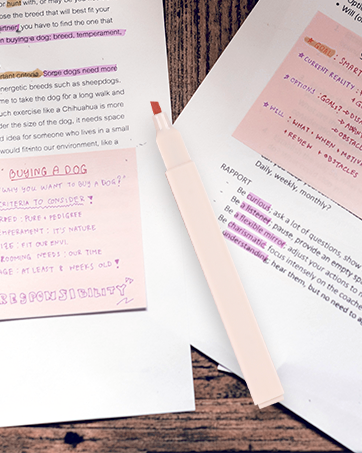 hunt with, or may be you
ose the breed that will best fit your
artner, you have to find the one that
n buying a dog; breed, temperament,
ortant criteria. Some dogs need more
energetic breeds such as sheepdogs.
me to take the dog for a long walk and
uch exercise like a Chihuahua is more
der the size of the dog, it needs space
d idea for someone who lives in a small
would fit into our environment, like a
BUYING A DOG
WHY YOU WANT TO BUY A DOG?
CRITERIA TO CONSIDER!
BREED: PURE + PEDIGREE
TEMPERAMENT: IT'S NATURE
SIZE: FIT OUR ENVI.
GROOMING NEEDS: OUR TIME
AGE: AT LEAST 8 WEEKS OLD!
RESPONSIBILITY
Will
GOAL: SMAR
CURRENT REALITY:
OPTIONS: GOALS?
OBSTACLES
WILL: WHAT · WHEN
REVIEW + OBSTACLES
Daily, weekly, monthly?
RAPPORT
Be curious, ask a lot of questions, show
Be a listener, pause, provide an empty
Be a flexible mirror, adjust your actions to
Be charismatic, focus intensely on the
understanding, hear them, but no need to